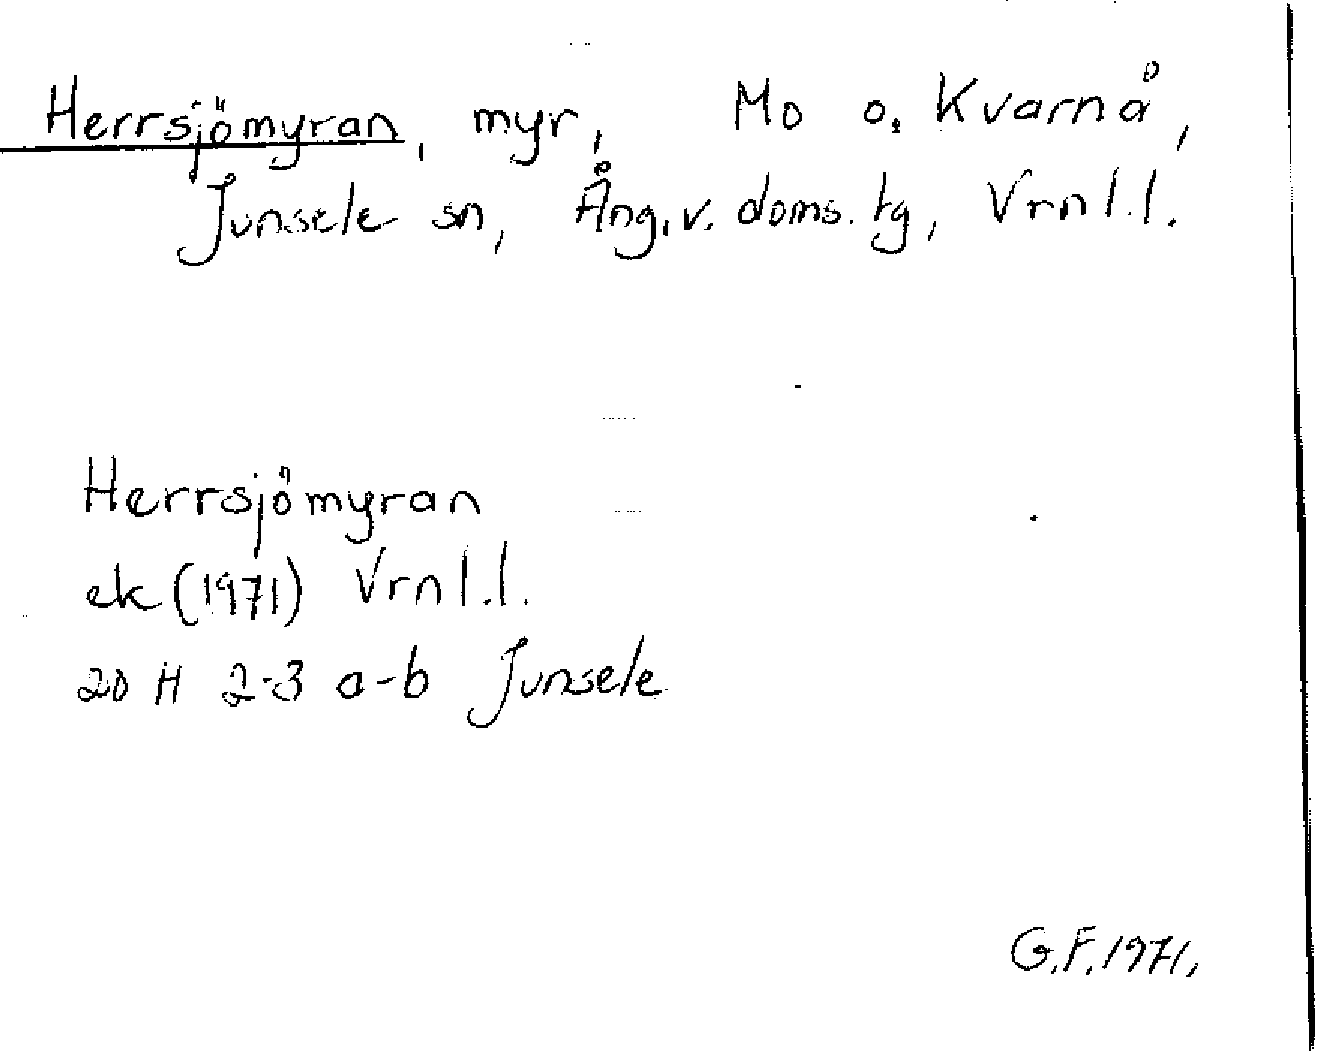 Herrsjömyran, myr, Mo o. Kvarnå,
Junsele sn, Ång.v. doms. tg, Vrnl.l.
Herrsjömyran
ek (1971) Vrnl.l.
20 H 2-3 a-b Junsele
G.F. 1971.